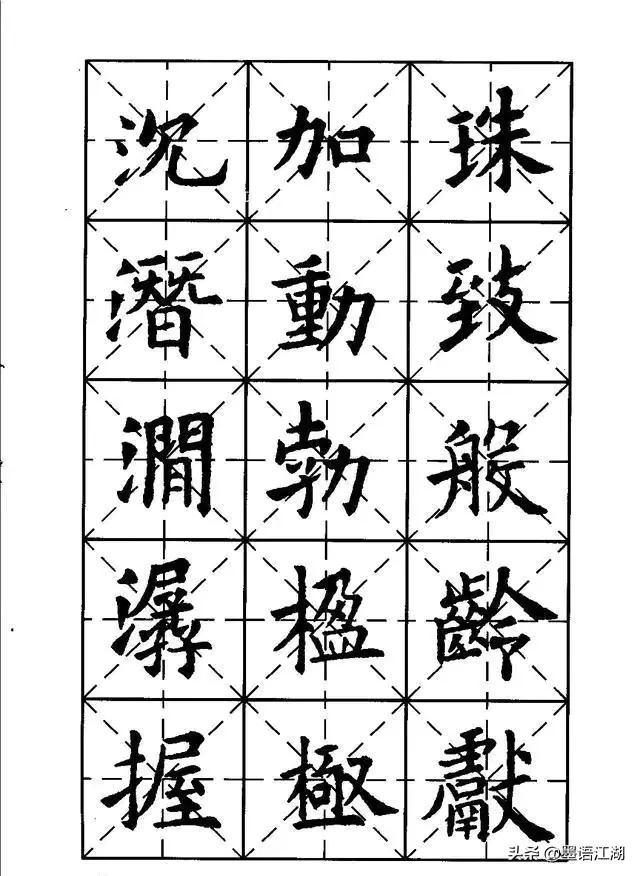 珠致般齡獻
加動勃楹極
沉潛澗潺握
头条 @墨语江湖